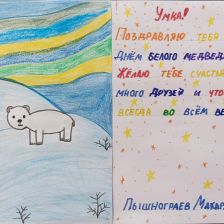 Умка!
Поздравляю тебя
Днём белого медведя
Желаю тебе счастья
много друзей и что
всегда во всём ве
Пышнограев Макар